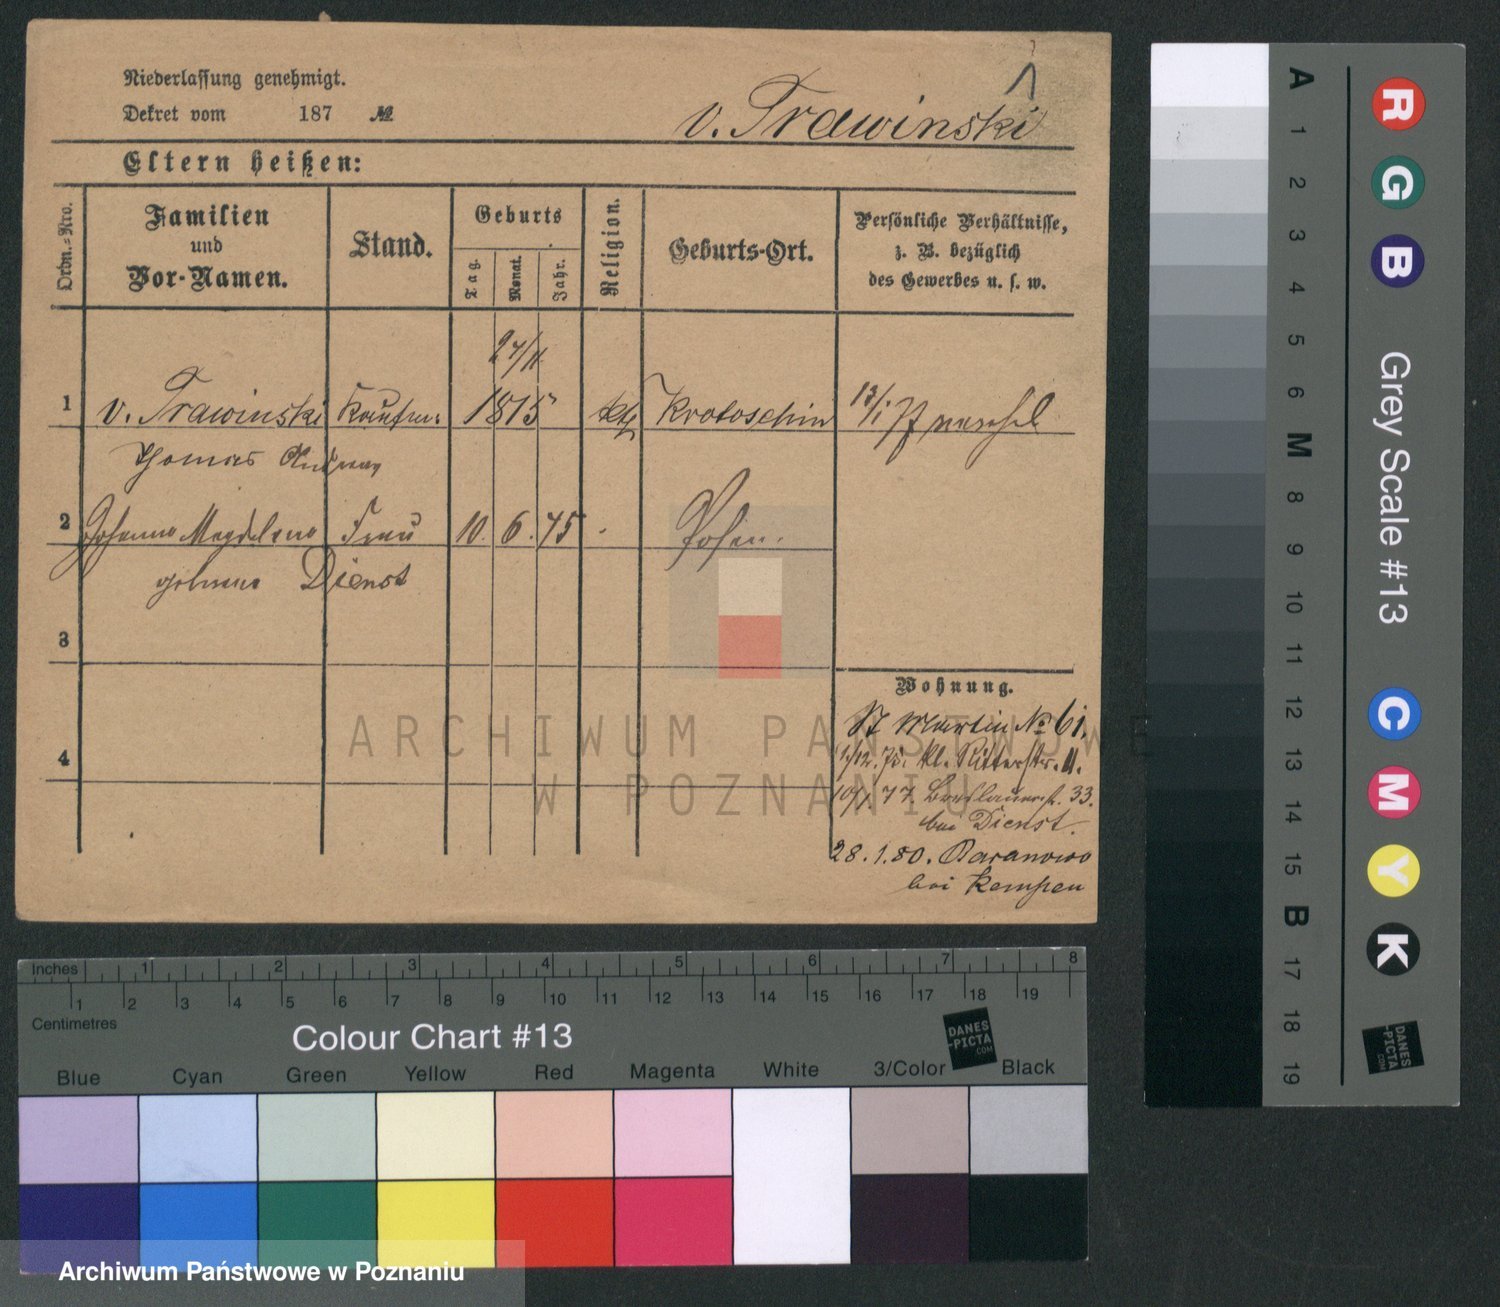 Niederlassung genehmigt.
Dekret vom 187 №
v. Trawinski
Eltern heißen:
Ordn.=Nro.
Familien
und
Vor-Namen.
Stand.
Geburts
Tag.
Monat.
Jahr.
Religion.
Geburts-Ort.
Persönliche Verhältnisse,
z. B. bezüglich
des Gewerbes u. s. w.
27/11
1 v. Trawinski Kaufm. 1815 kth Krotoschin 13/1 77
Thomas Andreas
2 Johanna Magdalena Frau 10. 6. 45 Posen.
geborene Dienst
3
4
Wohnung.
St Martin № 61.
1/12. 75. kl. Ritterstr. 11.
10/1. 77. Breslauerst. 33.
bei Dienst.
28.1.80. Baranowo
bei Kempen
ARCHIWUM PAŃSTWOWE
W POZNANIU
Inches 1 2 3 4 5 6 7 8
1 2 3 4 5 6 7 8 9 10 11 12 13 14 15 16 17 18 19
Centimetres
Colour Chart #13
DANES
-PICTA
.COM
Blue Cyan Green Yellow Red Magenta White 3/Color Black
Archiwum Państwowe w Poznaniu
A 1 2 3 4 5 6 M 8 9 10 11 12 13 14 15 B 17 18 19
R G B
Grey Scale #13
C M Y K
DANES
-PICTA
.COM